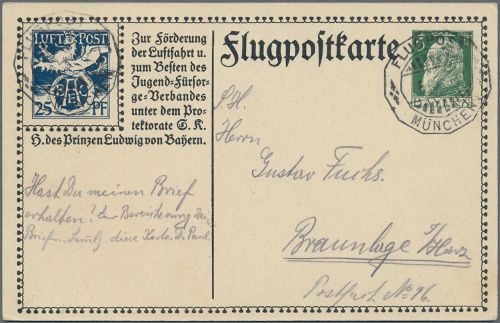 LUFT POST
BAEC
25 PF
Zur Förderung
der Luftfahrt u.
zum Besten des
Jugend-Fürsor-
ge-Verbandes
unter dem Pro-
tektorate S. K.
H. des Prinzen Ludwig von Bayern.
Flugpostkarte
5
FLUGPOST
MÜNCHEN
S.H.
Herrn
Gustav Fuchs.
Braunlage i/Harz
Postfach No 96.
Hast Du meinen Brief
erhalten? Zur Bereicherung Dei.
Briefm. Samlg. diese Karte. D. Paul.